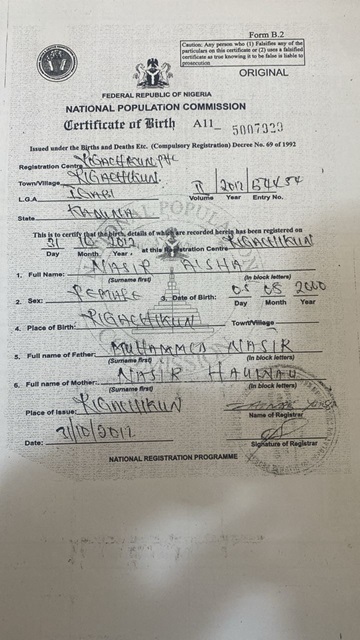 Form B.2
Caution: Any person who (1) Falsifies any of the
particulars on this certificate or (2) uses a falsified
certificate as true knowing it to be false is liable to
prosecution
ORIGINAL
FEDERAL REPUBLIC OF NIGERIA
NATIONAL POPULATION COMMISSION
Certificate of Birth A11_ 5007929
Issued under the Births and Deaths Etc. (Compulsory Registration) Decree No. 69 of 1992
Registration Centre RIGACHIKUN PHC
Town/Village RIGACHIKUN
L.G.A IGABI
II 2012 54434
Volume Year Entry No.
State KADUNA
This is to certify that the birth, details of which are recorded herein has been registered on
31 10 2012 at this Registration Centre RIGACHIKUN
Day Month Year
1. Full Name: NASIR AISHA
(Surname first) (In block letters)
2. Sex: FEMALE 3. Date of Birth: 05 08 2000
Day Month Year
4. Place of Birth: RIGACHIKUN Town/Village
5. Full name of Father: MUHAMMED NASIR
(Surname first) (In block letters)
6. Full name of Mother: NASIR HAUWAU
(Surname first) (In block letters)
Place of Issue: RIGACHIKUN
Name of Registrar
Date: 31/10/2012
Signature of Registrar
NATIONAL REGISTRATION PROGRAMME